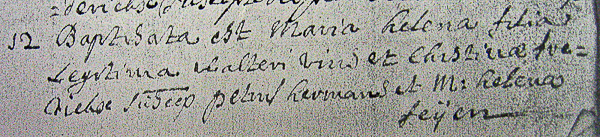 12 Baptisata est Maria helena filia
Legitima walteri vins et Christinæ fre=
suscep petrus hermans et M: helena
feijen